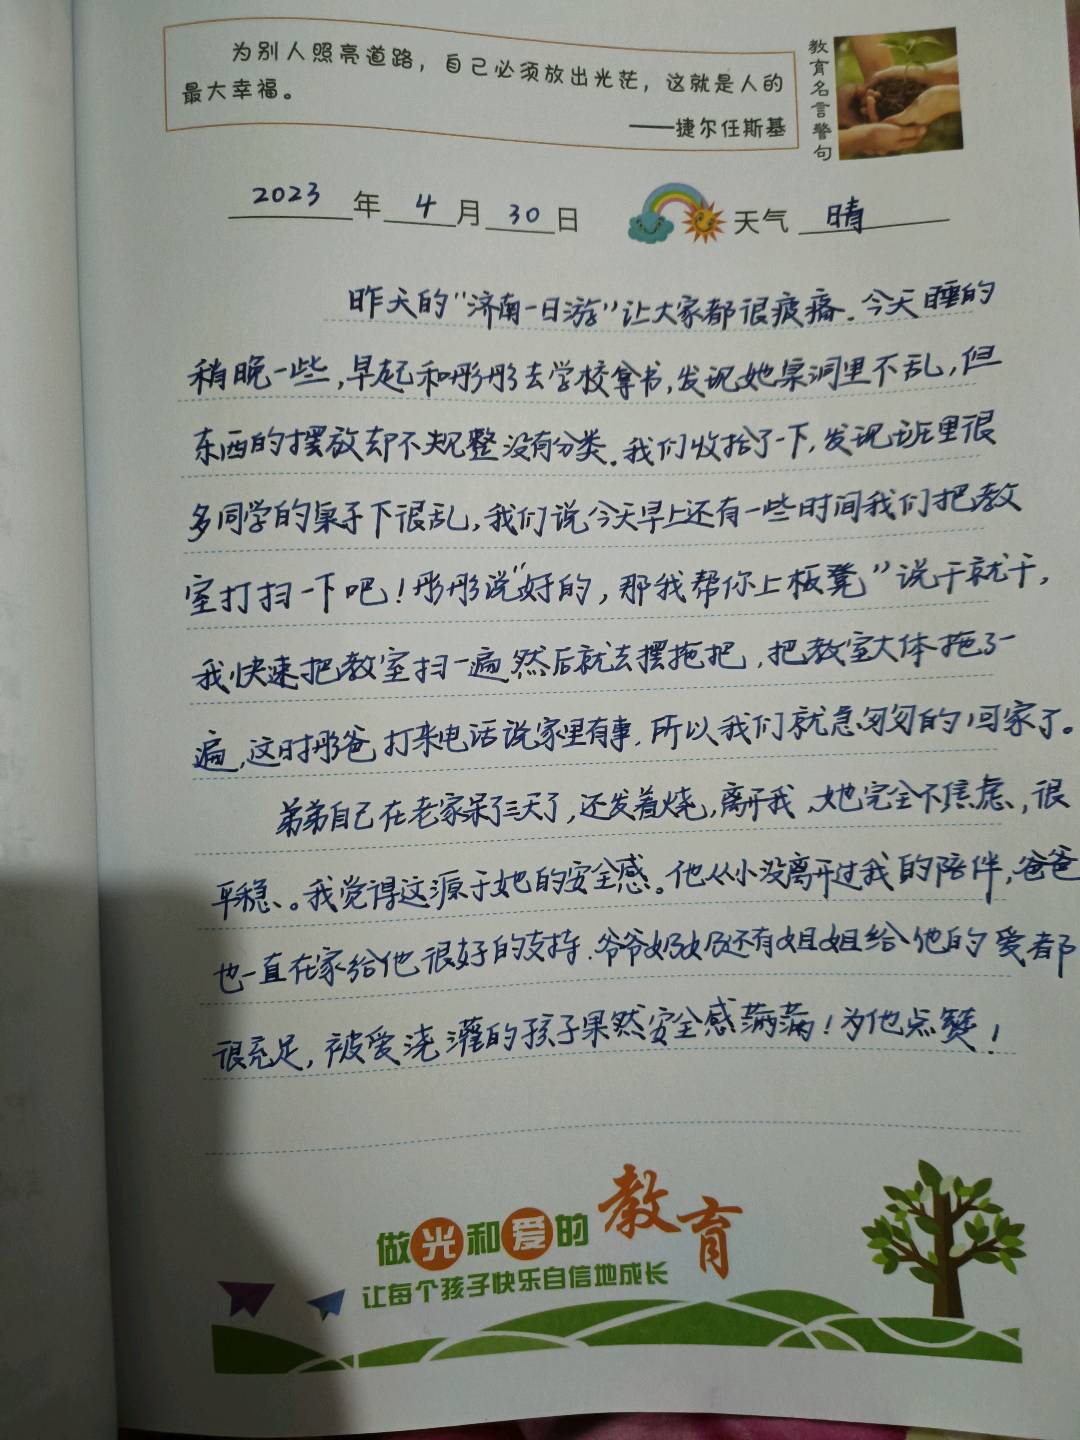 为别人照亮道路，自己必须放出光茫，这就是人的
最大幸福。
——捷尔任斯基
教育名言警句
2023年4月30日 天气 晴
昨天的“济南一日游”让大家都很疲惫.今天睡的
稍晚一些,早起和彤彤去学校拿书,发现她桌洞里不乱,但
东西的摆放却不规整没有分类.我们收拾了一下,发现班里很
多同学的桌子下很乱,我们说今天早上还有一些时间我们把教
室打扫一下吧!彤彤说“好的,那我帮你上板凳”说干就干,
我快速把教室扫一遍,然后就去摆拖把,把教室大体拖了一
遍,这时彤爸打来电话说家里有事.所以我们就急匆匆的回家了。
弟弟自己在老家呆了三天了,还发着烧,离开我,她完全不焦虑,很
平稳、。我觉得这源于她的安全感。他从小没离开过我的陪伴,爸爸
也一直在家给他很好的支持.爷爷奶奶还有姐姐给他的爱都
很充足,被爱浇灌的孩子果然安全感满满!为他点赞!
做光和爱的教育
让每个孩子快乐自信地成长